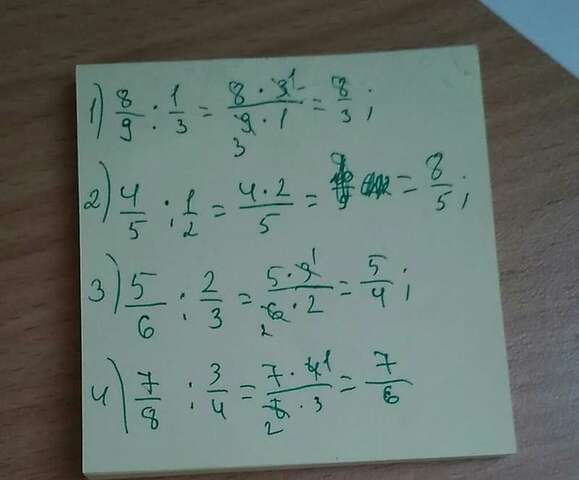 1) 8/9 : 1/3 = 8 · 3 1 / 9 · 1 3 = 8/3;
2) 4/5 : 1/2 = 4 · 2 / 5 = = 8/5;
3) 5/6 : 2/3 = 5 · 3 1 / 6 · 2 2 = 5/4;
4) 7/8 : 3/4 = 7 · 4 1 / 8 · 3 2 = 7/6